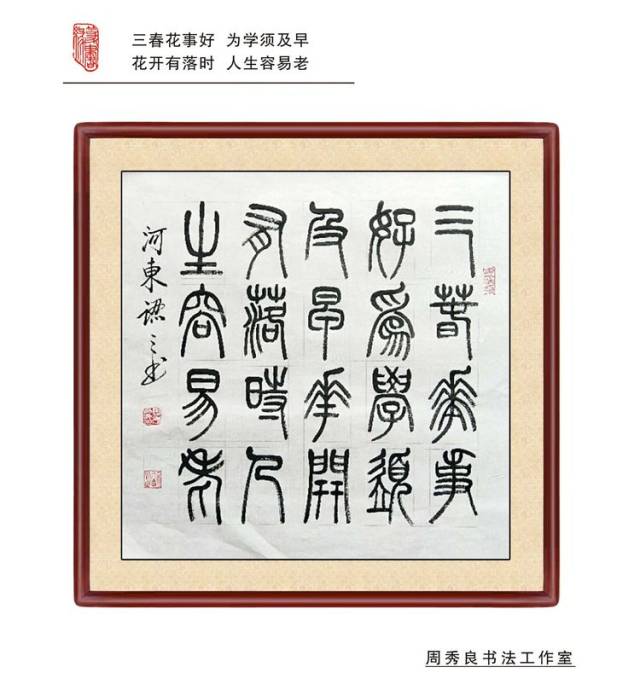 三春花事好 为学须及早
花开有落时 人生容易老
三春花事
好為學須
及早花開
有落時人
生容易老
河東 之书
周秀良书法工作室